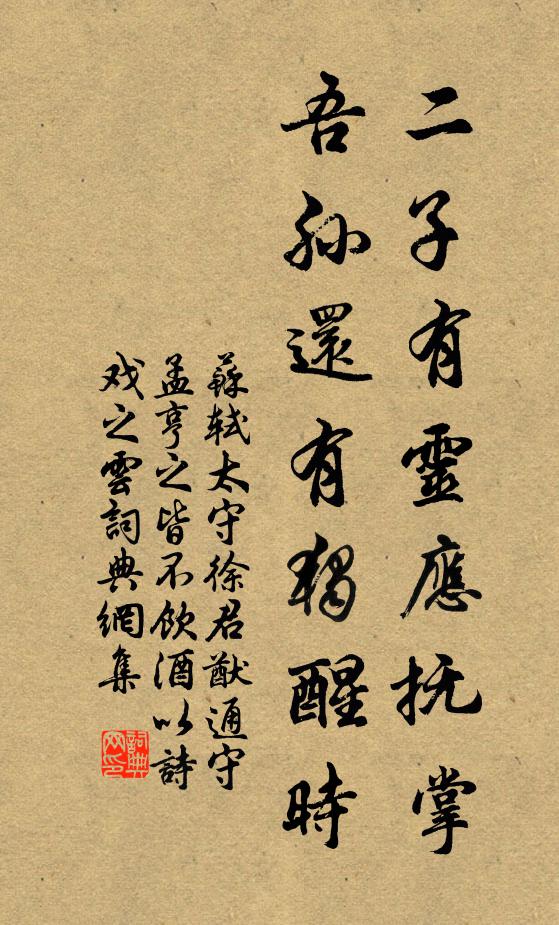 二子有靈應抚掌
吾孙還有獨醒時
蘇軾太守徐君猷通守
孟亨之皆不飲酒以詩
戏之雲詞典網集
詞典
网印